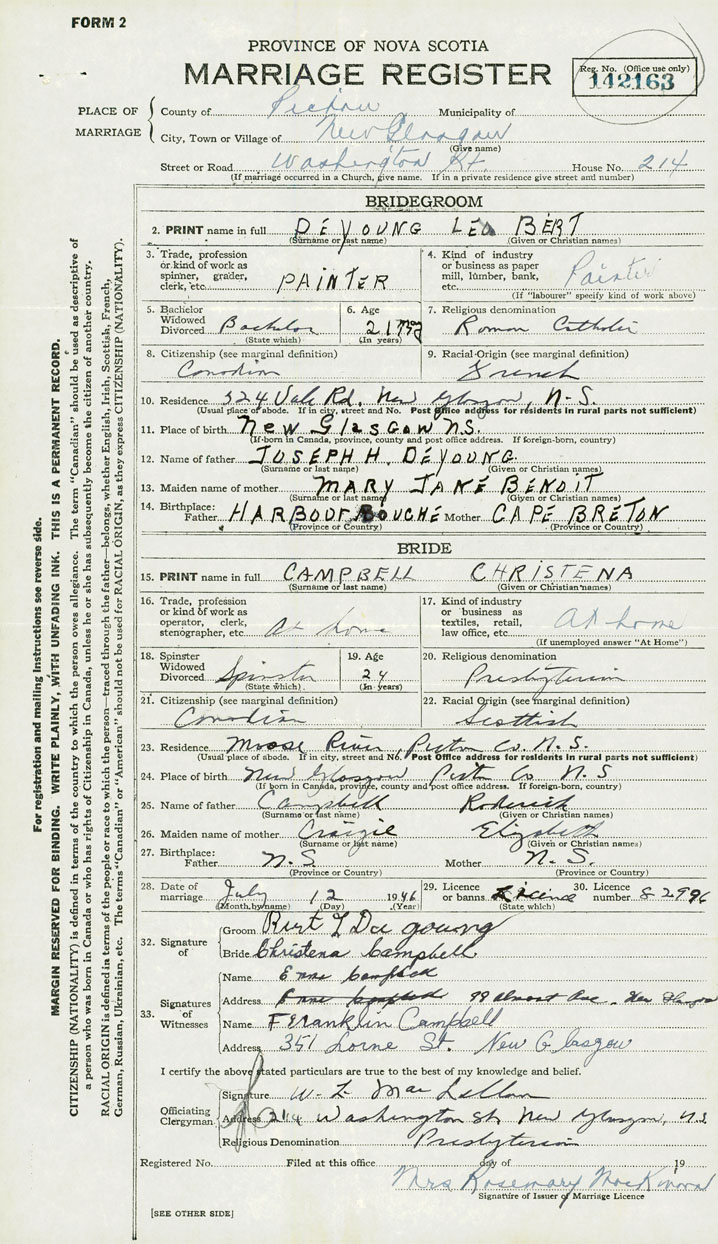 FORM 2
PROVINCE OF NOVA SCOTIA
MARRIAGE REGISTER
Reg. No. (Office use only)
142163
PLACE OF MARRIAGE
County of Pictou Municipality of
City, Town or Village of New Glasgow
(Give name)
Street or Road Washington St. House No. 214
(If marriage occurred in a Church, give name. If in a private residence give street and number)
BRIDEGROOM
2. PRINT name in full DEYOUNG LEO BERT
(Surname or last name) (Given or Christian names)
3. Trade, profession or kind of work as spinner, grader, clerk, etc. PAINTER
4. Kind of industry or business as paper mill, lumber, bank, etc. Painter
(If "labourer" specify kind of work above)
5. Bachelor Widowed Divorced Bachelor
(State which)
6. Age 21
(In years)
7. Religious denomination Roman Catholic
8. Citizenship (see marginal definition) Canadian
9. Racial Origin (see marginal definition) French
10. Residence 324 Vale Rd. New Glasgow, N-S.
(Usual place of abode. If in city, street and No. Post Office address for residents in rural parts not sufficient)
11. Place of birth New Glasgow N.S.
(If born in Canada, province, county and post office address. If foreign-born, country)
12. Name of father JOSEPH H. DEYOUNG
(Surname or last name) (Given or Christian names)
13. Maiden name of mother MARY JANE BENOIT
(Surname or last name) (Given or Christian names)
14. Birthplace: Father HARBOUR BOUCHE Mother CAPE BRETON
(Province or Country) (Province or Country)
BRIDE
15. PRINT name in full CAMPBELL CHRISTENA
(Surname or last name) (Given or Christian names)
16. Trade, profession or kind of work as operator, clerk, stenographer, etc. At home
17. Kind of industry or business as textiles, retail, law office, etc. At home
(If unemployed answer "At Home")
18. Spinster Widowed Divorced Spinster
(State which)
19. Age 24
(In years)
20. Religious denomination Presbyterian
21. Citizenship (see marginal definition) Canadian
22. Racial Origin (see marginal definition) Scottish
23. Residence Moose River, Pictou Co. N.S.
(Usual place of abode. If in city, street and No. Post Office address for residents in rural parts not sufficient)
24. Place of birth New Glasgow Pictou Co N.S
(If born in Canada, province, county and post office address. If foreign-born, country)
25. Name of father Campbell Roderick
(Surname or last name) (Given or Christian names)
26. Maiden name of mother Craigie Elizabeth
(Surname or last name) (Given or Christian names)
27. Birthplace: Father N.S Mother N.S.
(Province or Country) (Province or Country)
28. Date of marriage July 12 1946
(Month by name) (Day) (Year)
29. Licence or banns Licence
(State which)
30. Licence number 82996
32. Signature of
Groom
Bride Christena Campbell
33. Signatures of Witnesses
Name Campbell
Address Ave. New Glasgow
Name Franklin Campbell
Address 351 Lorne St. New Glasgow
I certify the above stated particulars are true to the best of my knowledge and belief.
Officiating Clergyman
Signature W. L. MacLellan
Address 214 Washington St, New Glasgow, N.S.
Religious Denomination Presbyterian
Registered No. Filed at this office day of 19
Mrs Rosemary MacKinnon
Signature of Issuer of Marriage Licence
[SEE OTHER SIDE]
For registration and mailing instructions see reverse side.
MARGIN RESERVED FOR BINDING. WRITE PLAINLY, WITH UNFADING INK. THIS IS A PERMANENT RECORD.
CITIZENSHIP (NATIONALITY) is defined in terms of the country to which the person owes allegiance. The term "Canadian" should be used as descriptive of
a person who was born in Canada or who has rights of Citizenship in Canada, unless he or she has subsequently become the citizen of another country.
RACIAL ORIGIN is defined in terms of the people or race to which the person—traced through the father—belongs, whether English, Irish, Scottish, French,
German, Russian, Ukrainian, etc. The terms "Canadian" or "American" should not be used for RACIAL ORIGIN, as they express CITIZENSHIP (NATIONALITY).